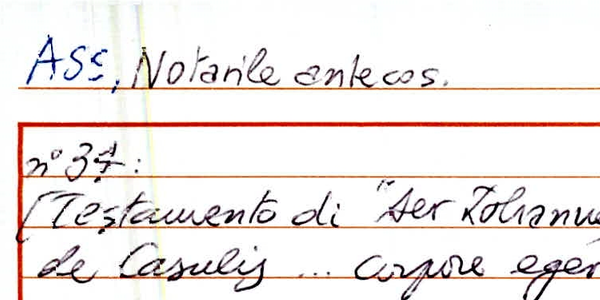 ASS, Notarile antecos.
n° 37:
[Testamento di "Ser Iohannes
de Casulis ... corpore eger